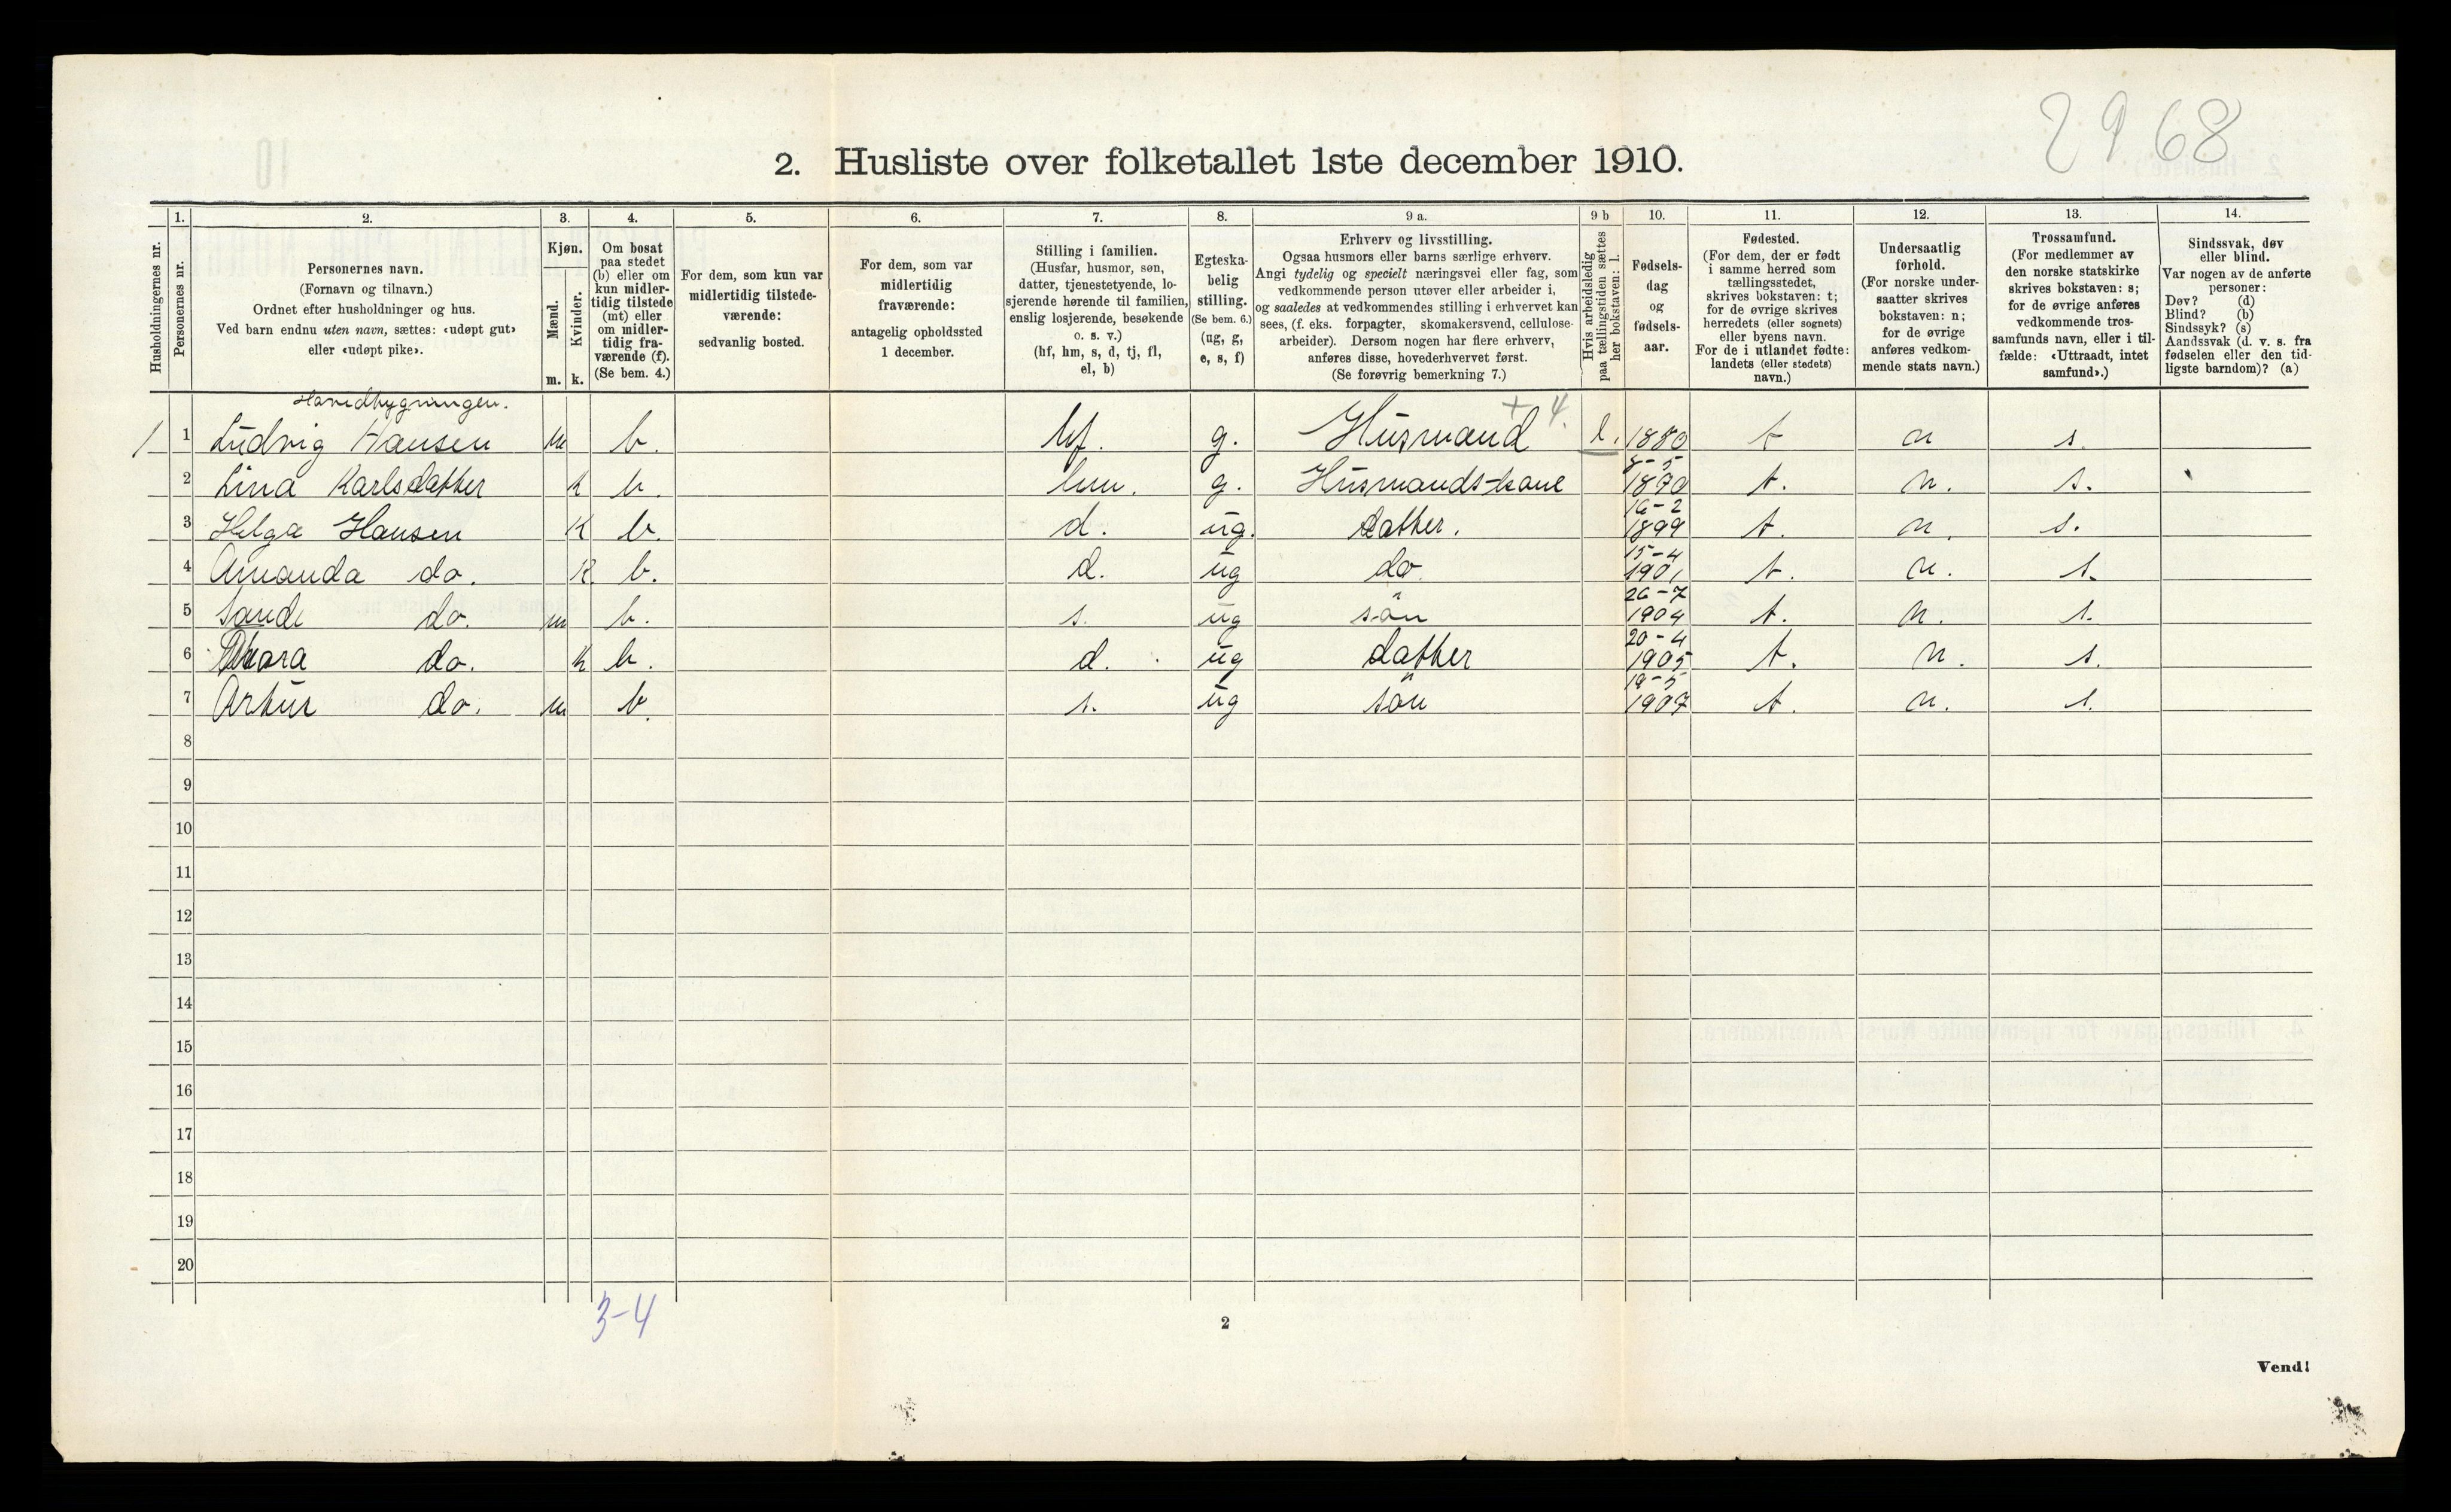 2968
2. Husliste over folketallet 1ste december 1910.
Husholdningernes nr.
1. Personernes nr.
2. Personernes navn. (Fornavn og tilnavn.) Ordnet efter husholdninger og hus. Ved barn endnu uten navn, sættes: «udøpt gut» eller «udøpt pike».
3. Kjøn. Mænd. m. Kvinder. k.
4. Om bosat paa stedet (b) eller om kun midlertidig tilstede (mt) eller om midlertidig fraværende (f). (Se bem. 4.)
5. For dem, som kun var midlertidig tilstedeværende: sedvanlig bosted.
6. For dem, som var midlertidig fraværende: antagelig opholdssted 1 december.
7. Stilling i familien. (Husfar, husmor, søn, datter, tjenestetyende, losjerende hørende til familien, enslig losjerende, besøkende o. s. v.) (hf, hm, s, d, tj, fl, el, b)
8. Egteskabelig stilling. (Se bem. 6.) (ug, g, e, s, f)
9 a. Erhverv og livsstilling. Ogsaa husmors eller barns særlige erhverv. Angi tydelig og specielt næringsvei eller fag, som vedkommende person utøver eller arbeider i, og saaledes at vedkommendes stilling i erhvervet kan sees, (f. eks. forpagter, skomakersvend, cellulosearbeider). Dersom nogen har flere erhverv, anføres disse, hovederhvervet først. (Se forøvrig bemerkning 7.)
9 b Hvis arbeidsledig paa tællingstiden sættes her bokstaven: l.
10. Fødselsdag og fødselsaar.
11. Fødested. (For dem, der er født i samme herred som tællingsstedet, skrives bokstaven: t; for de øvrige skrives herredets (eller sognets) eller byens navn. For de i utlandet fødte: landets (eller stedets) navn.)
12. Undersaatlig forhold. (For norske undersaatter skrives bokstaven: n; for de øvrige anføres vedkommende stats navn.)
13. Trossamfund. (For medlemmer av den norske statskirke skrives bokstaven: s; for de øvrige anføres vedkommende trossamfunds navn, eller i tilfælde: «Uttraadt, intet samfund».)
14. Sindssvak, døv eller blind. Var nogen av de anførte personer: Døv? (d) Blind? (b) Sindssyk? (s) Aandssvak (d. v. s. fra fødselen eller den tidligste barndom)? (a)
Hovedbygningen.
1 1 Ludvig Hansen m b. hf. g. Husmand + 4. l. 1880 t n s.
2 Lina Karlsdatter k b. hm. g. Husmandskone 8-5 1870 t. n. s.
3 Helga Hansen K b. d. ug. datter. 16-2 1899 t. n. s.
4 Amanda do. K b. d. ug do 15-4 1901 t. n. s.
5 Sande do. m b. s. ug sön 26-7 1904 t. n. s.
6 do. k b. d. ug datter 20-4 1905 t. n. s.
7 Artur do. m b. s. ug sön 19-5 1907 t. n. s.
8
9
10
11
12
13
14
15
16
17
18
19
20
3-4
2
Vend!